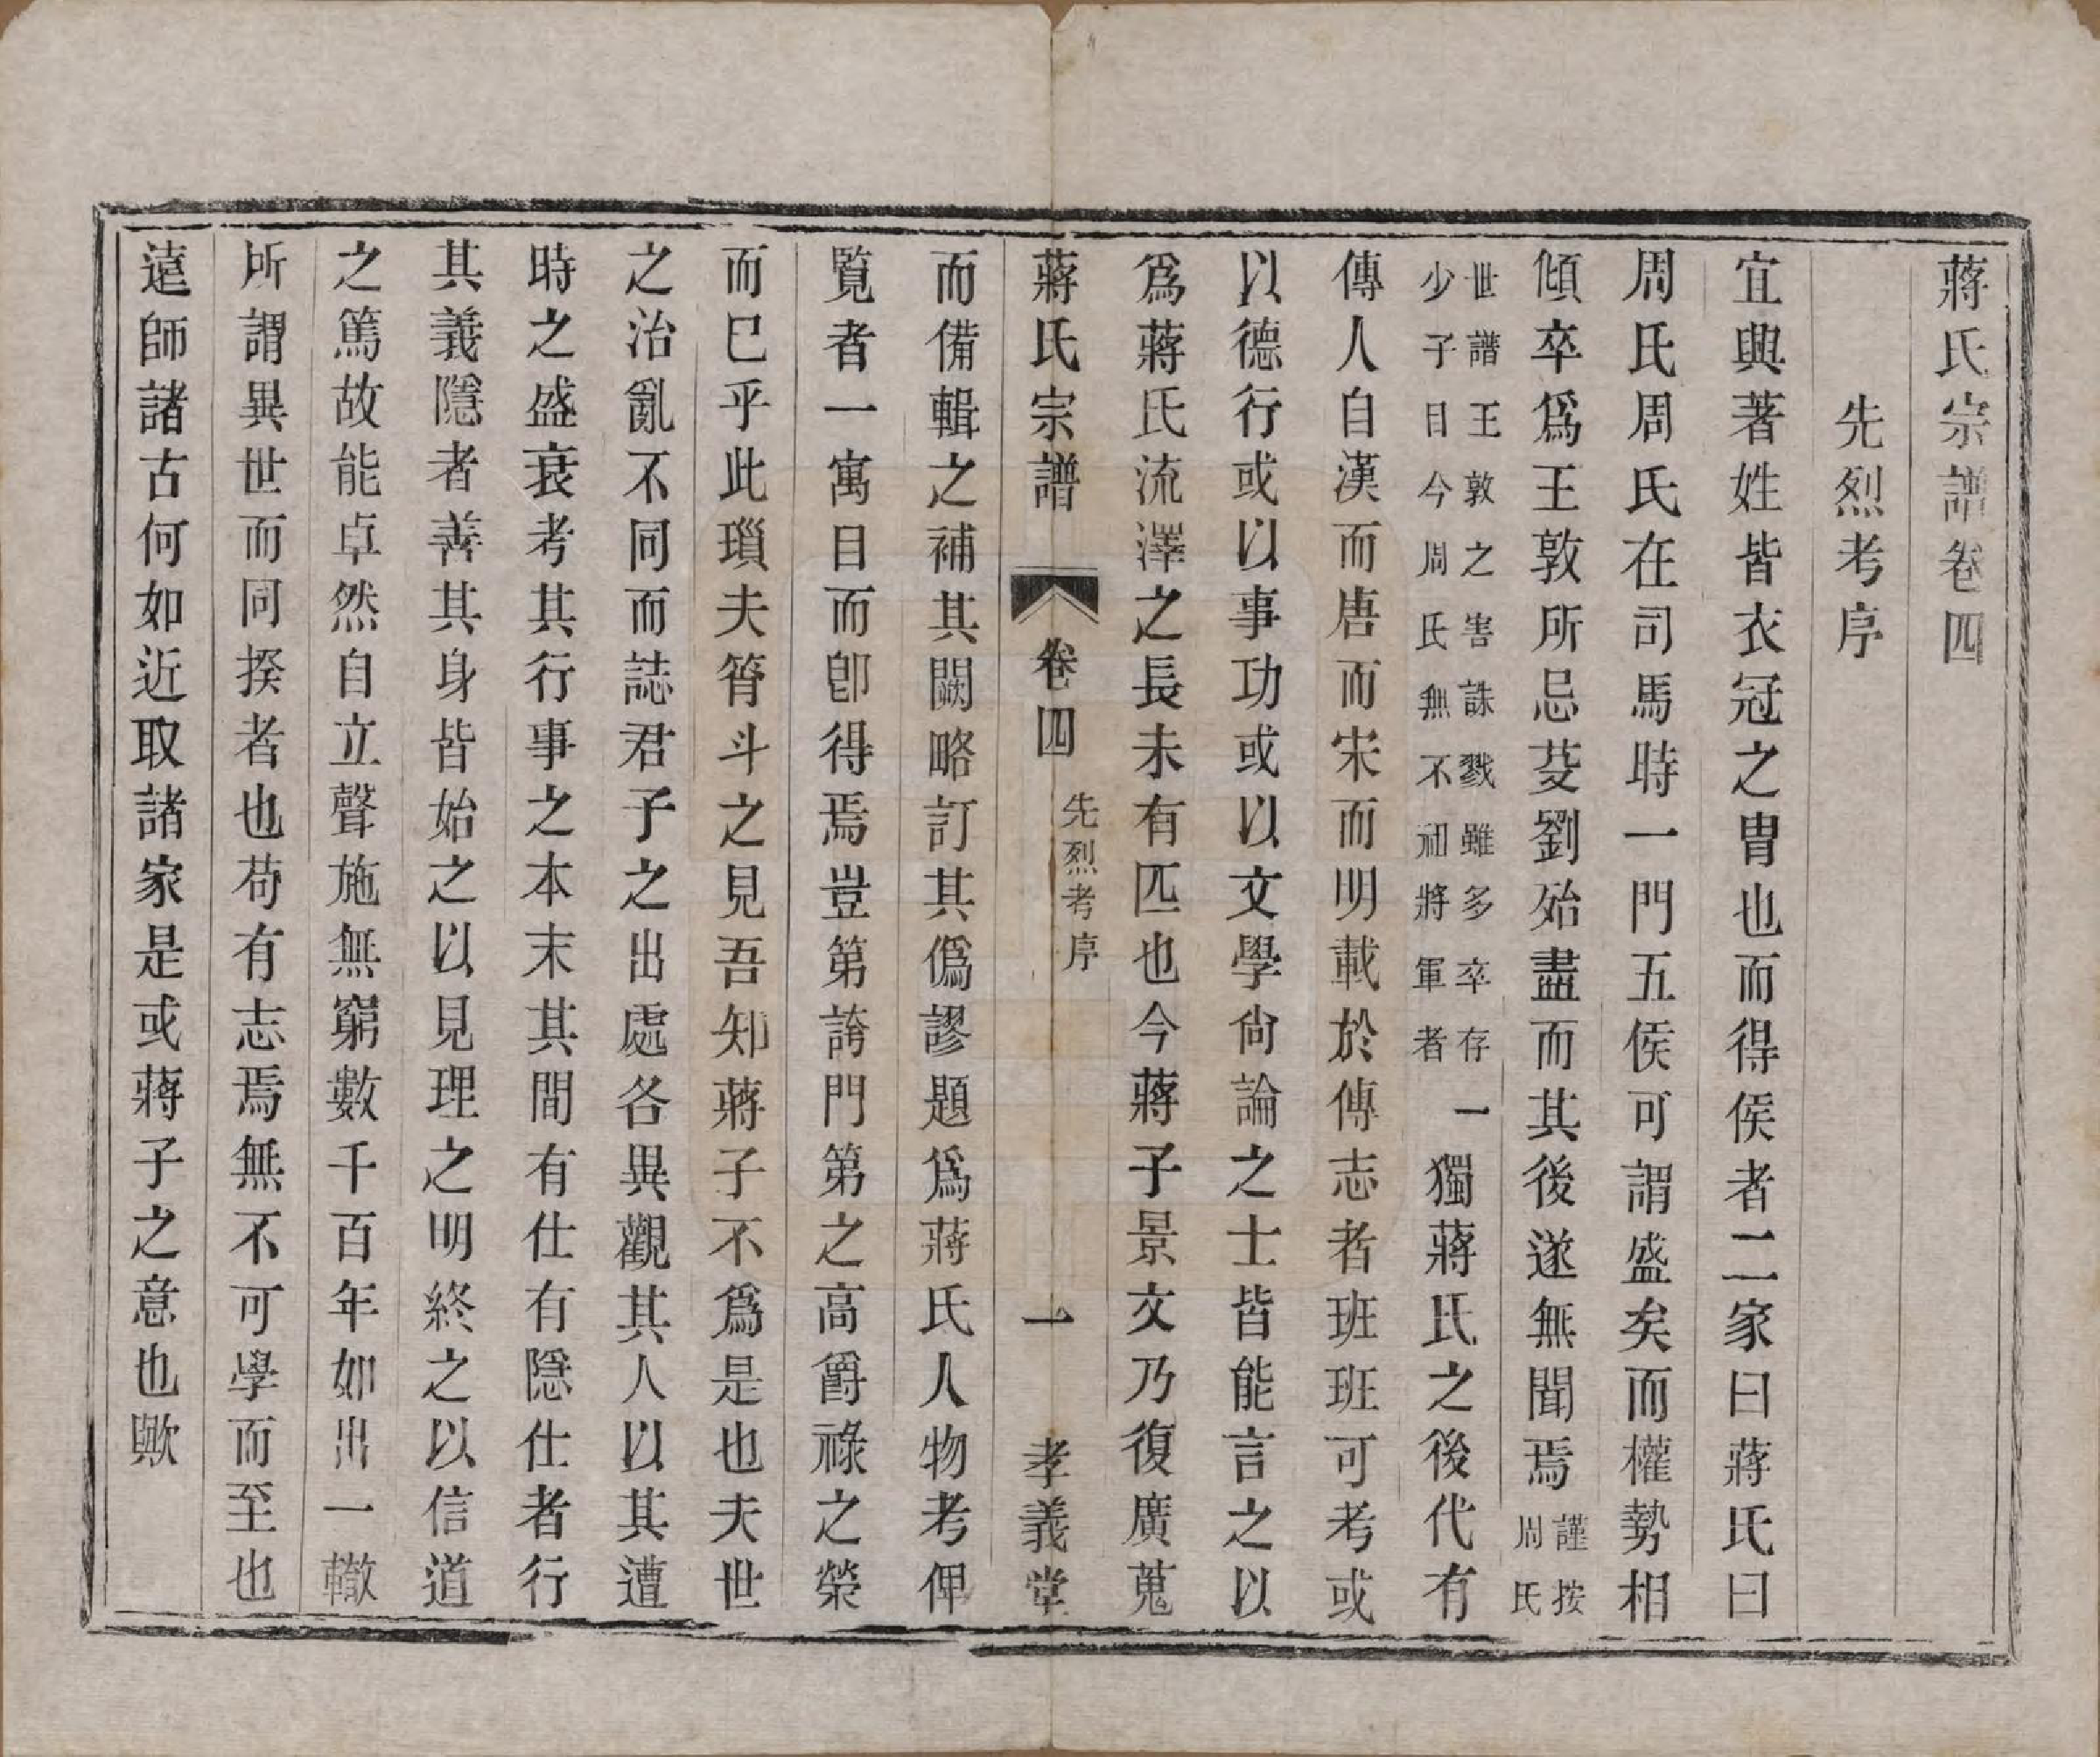 蔣氏宗譜卷四
先烈考序
宜興著姓皆衣冠之胄也而得侯者二家曰蔣氏曰
周氏周氏在司馬時一門五侯可謂盛矣而權勢相
傾卒爲王敦所忌芟劉殆盡而其後遂無聞焉謹按周氏
世譜王敦之害誅戮雖多卒存
少子日今周氏無不祖將軍者
一獨蔣氏之後代有
傳人自漢而唐而宋而明載於傳志者班班可考或
以德行或以事功或以文學尙論之士皆能言之以
爲蔣氏流澤之長未有匹也今蔣子景文乃復廣蒐
蔣氏宗譜 卷四 先烈考序 一 孝義堂
而備輯之補其闕略訂其僞謬題爲蔣氏人物考俾
覽者一寓目而卽得焉豈第誇門第之高爵祿之榮
而已乎此瑣夫筲斗之見吾知蔣子不爲是也夫世
之治亂不同而誌君子之出處各異觀其人以其遭
時之盛衰考其行事之本末其間有仕有隱仕者行
其義隱者善其身皆始之以見理之明終之以信道
之篤故能卓然自立聲施無窮數千百年如出一轍
所謂異世而同揆者也苟有志焉無不可學而至也
遠師諸古何如近取諸家是或蔣子之意也歟